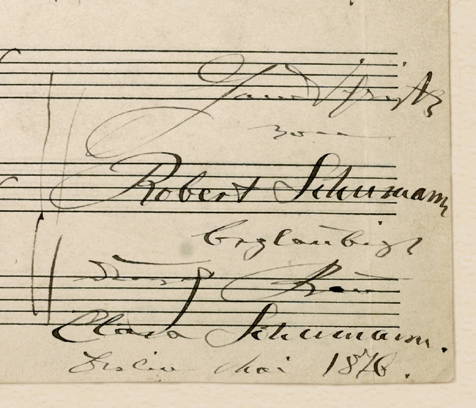 Handschrift
von
Robert Schumann
beglaubigt
durch
Clara Schumann.
Berlin Mai 1876.